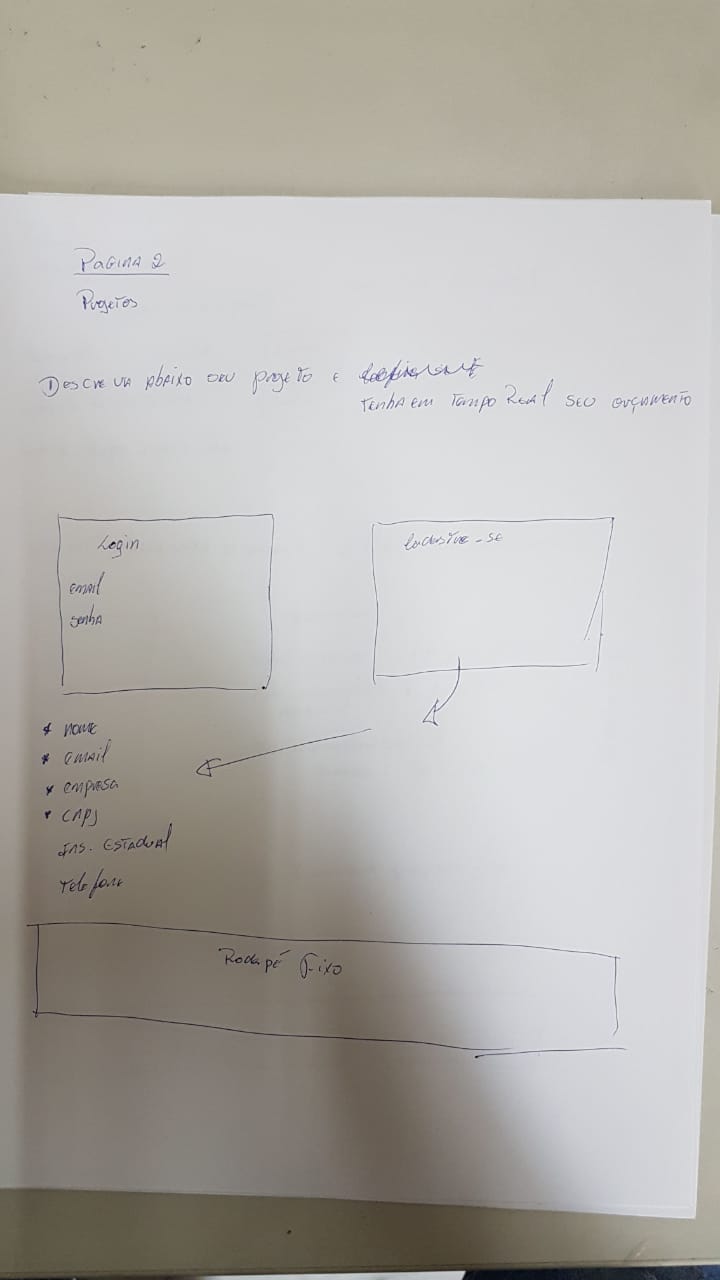 PAGINA 2
Projetos
DESCREVA ABAIXO SEU projeto E
TENHA EM TEMPO REAL SEU ORÇAMENTO
Login
email
senha
CADASTRE-SE
* NOME
* EMAIL
* EMPRESA
* CNPJ
INS. ESTADUAL
Telefone
Rodapé Fixo